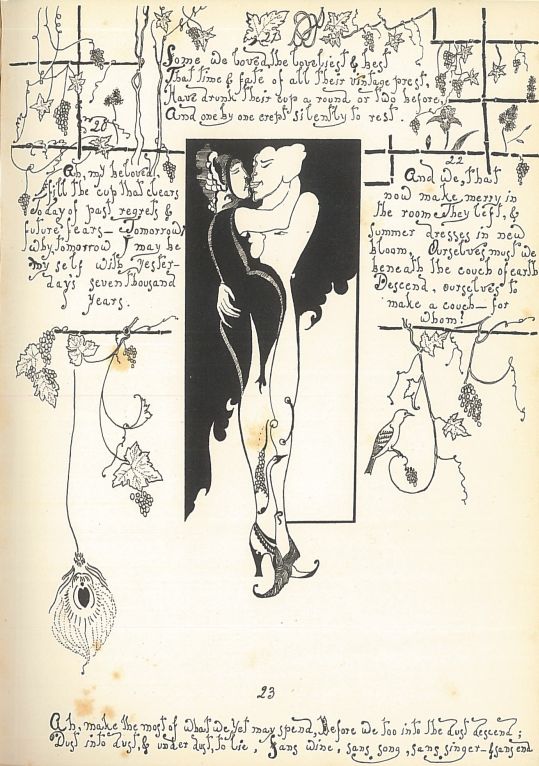 21
Some we loved, the loveliest & best
That time & fate of all their vintage prest,
Have drunk their cup a round or two before,
And one by one crept silently to rest.
20
Ah, my beloved
fill the cup that clears
today of past regrets &
future fears— tomorrow
why tomorrow I may be
my self with yester-
days seven thousand
years.
22
And we, that
now make merry in
the room They left, &
summer dresses in new
bloom, Ourselves must we
beneath the couch of earth
Descend, ourselves to
make a couch— for
whom!
23
Ah, make the most of what we yet may spend, Before we too into the dust descend;
Dust into dust, & under dust, to lie, Sans wine, sans song, sans singer— & sans end